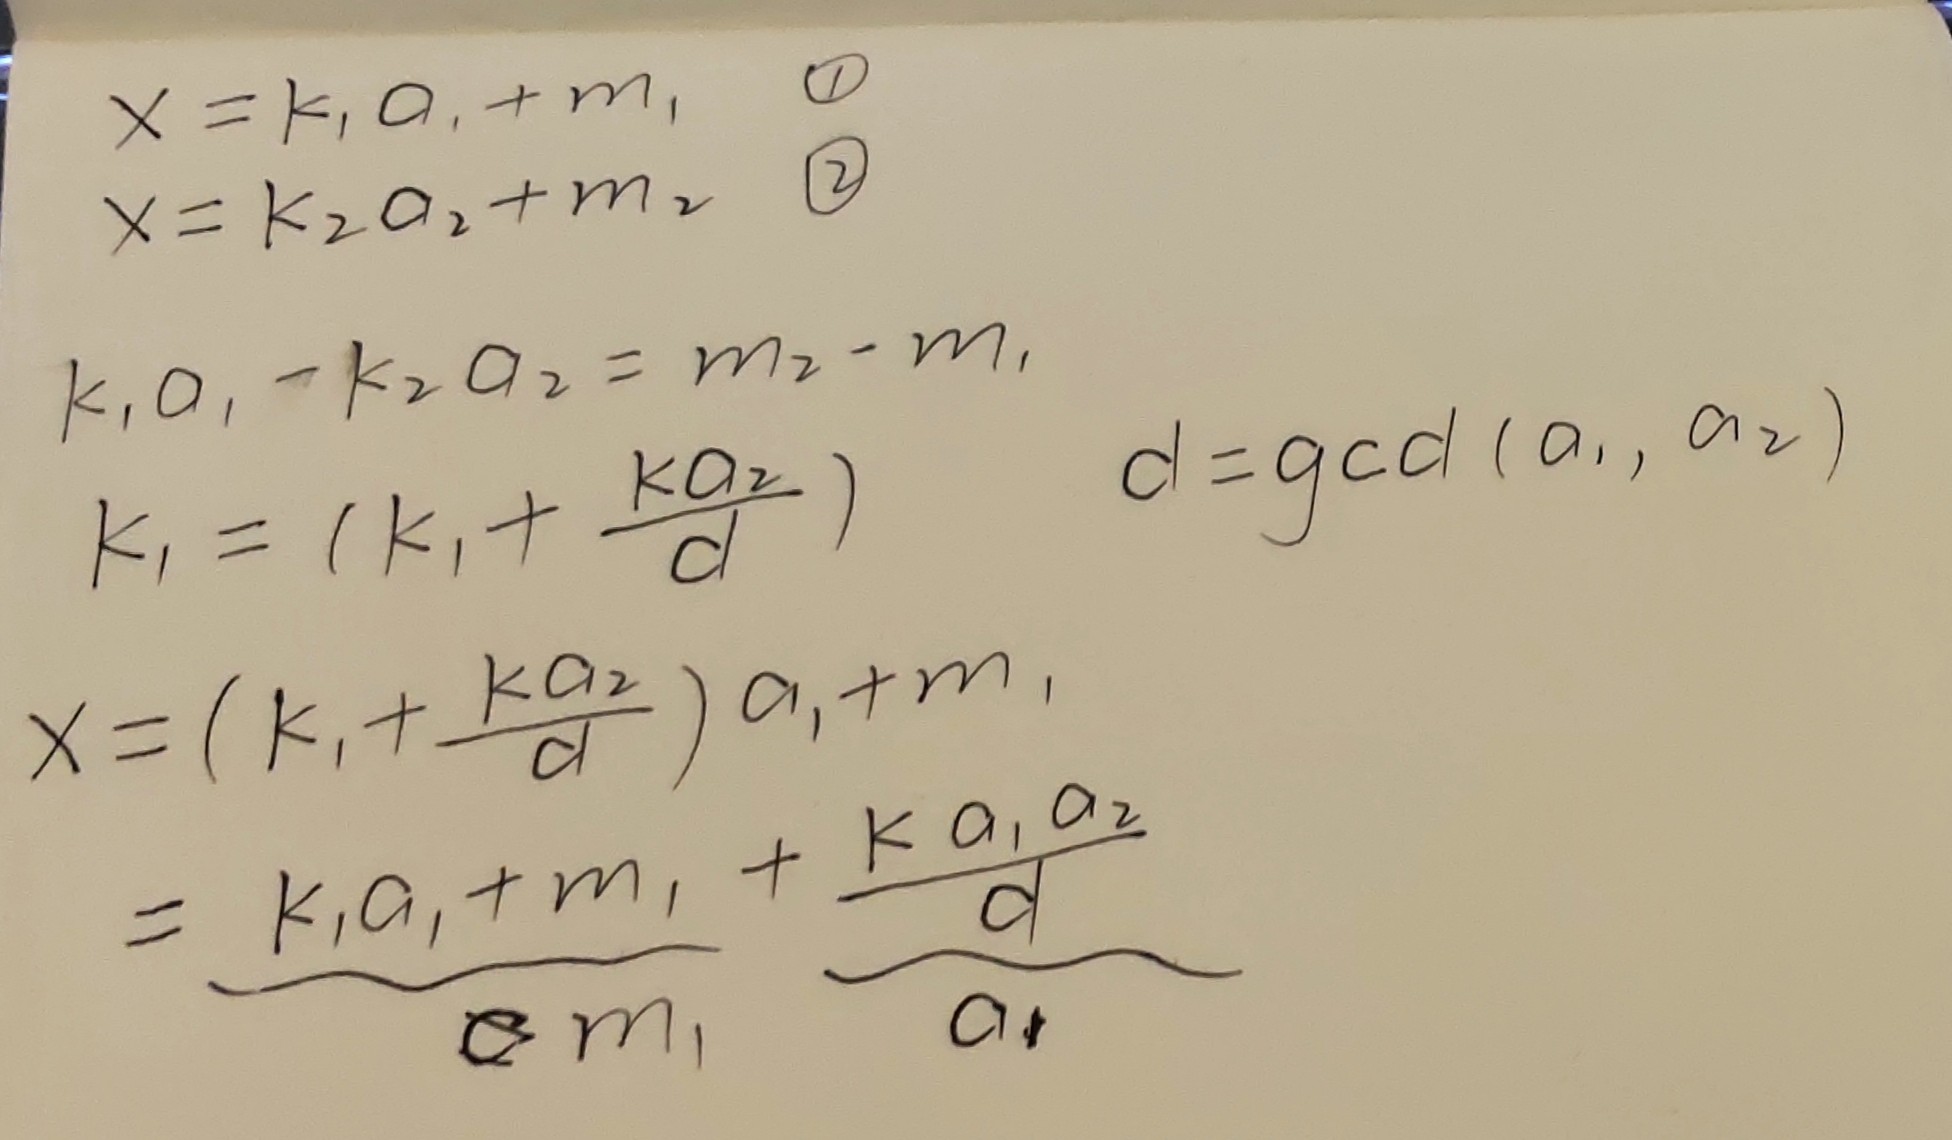 x = k₁a₁ + m₁ ①
x = k₂a₂ + m₂ ②
k₁a₁ - k₂a₂ = m₂ - m₁
k₁ = (k₁ + ka₂/d) d = gcd(a₁, a₂)
x = (k₁ + ka₂/d)a₁ + m₁
= k₁a₁ + m₁ + ka₁a₂/d
m₁ a₁